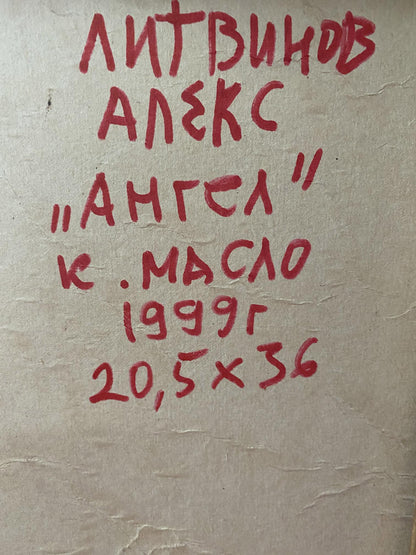 ЛИТВИНОВ
АЛЕКС
„Ангел”
к. МАСЛО
1999г
20,5 x 36